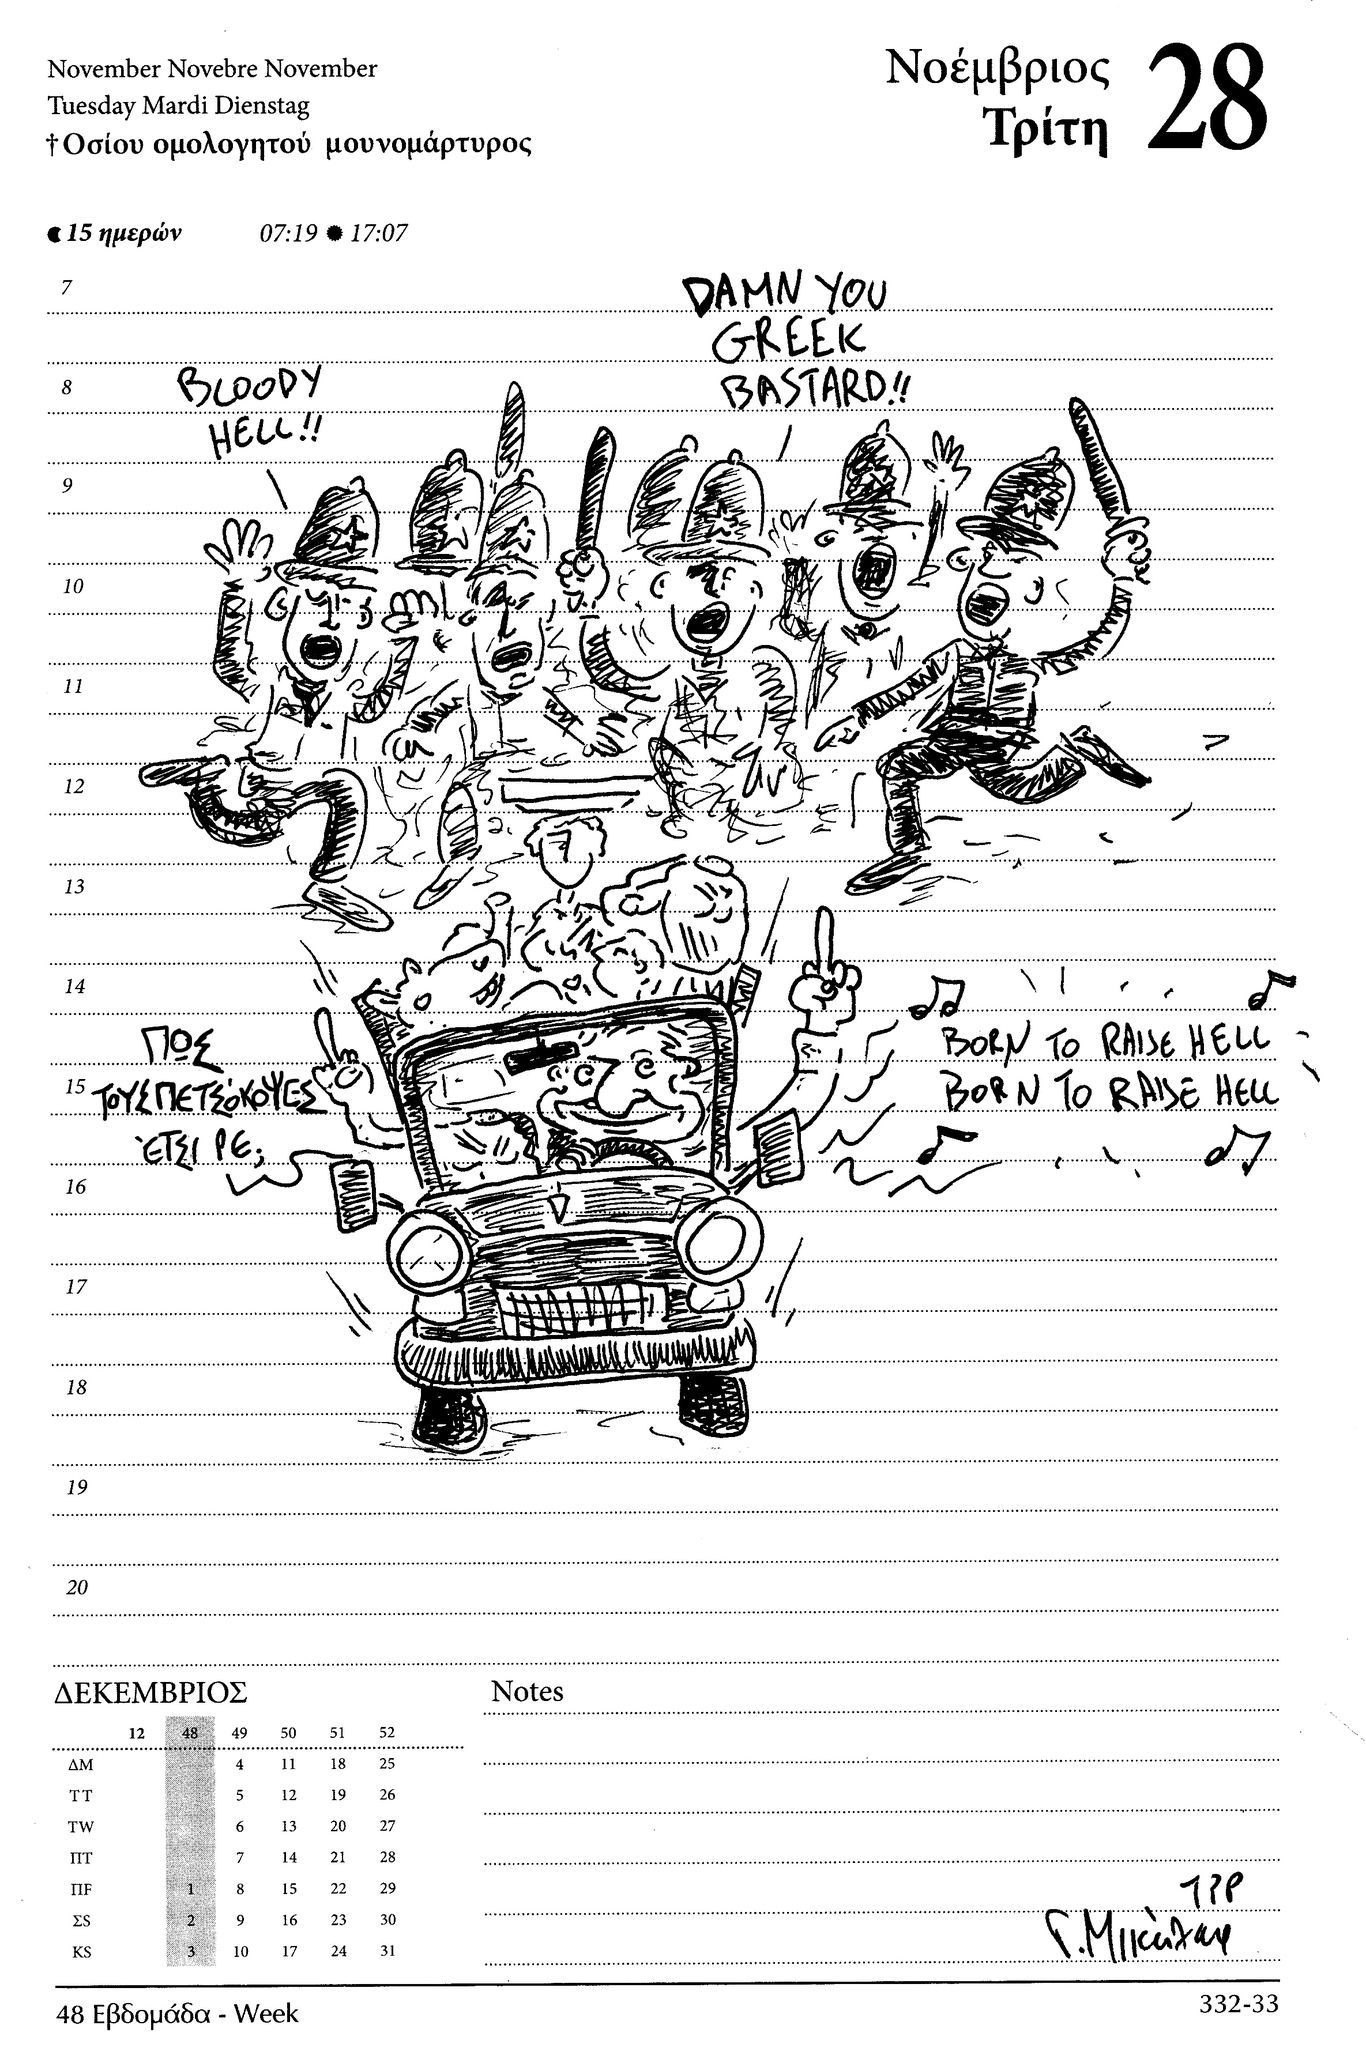 November Novebre November
Tuesday Mardi Dienstag
†Οσίου ομολογητού μουνομάρτυρος
Νοέμβριος
Τρίτη
28
15 ημερών 07:19 17:07
7
DAMN YOU
GREEK
BASTARD!!
8
BLOODY
HELL!!
9
10
11
12
13
14
ΠΩΣ
ΤΟΥΣ ΠΕΤΣΟΚΟΨΕΣ
ΈΤΣΙ ΡΕ;
BORN TO RAISE HELL
BORN TO RAISE HELL
15
16
17
18
19
20
ΔΕΚΕΜΒΡΙΟΣ
12 48 49 50 51 52
ΔΜ 4 11 18 25
ΤΤ 5 12 19 26
ΤW 6 13 20 27
ΠΤ 7 14 21 28
ΠF 1 8 15 22 29
ΣS 2 9 16 23 30
ΚS 3 10 17 24 31
Notes
48 Εβδομάδα - Week
332-33